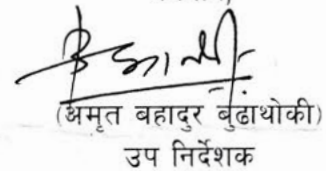 (अमृत बहादुर बुढाथोकी)
उप निर्देशक